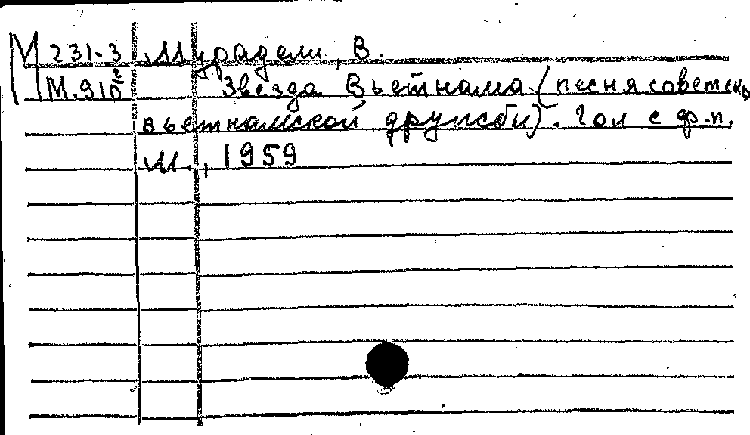 М 231-3 Мурадели, В.
М.910 Звезда Вьетнама (песня советск
вьетнамской дружбы). Гол с ф-п.
М., 1959